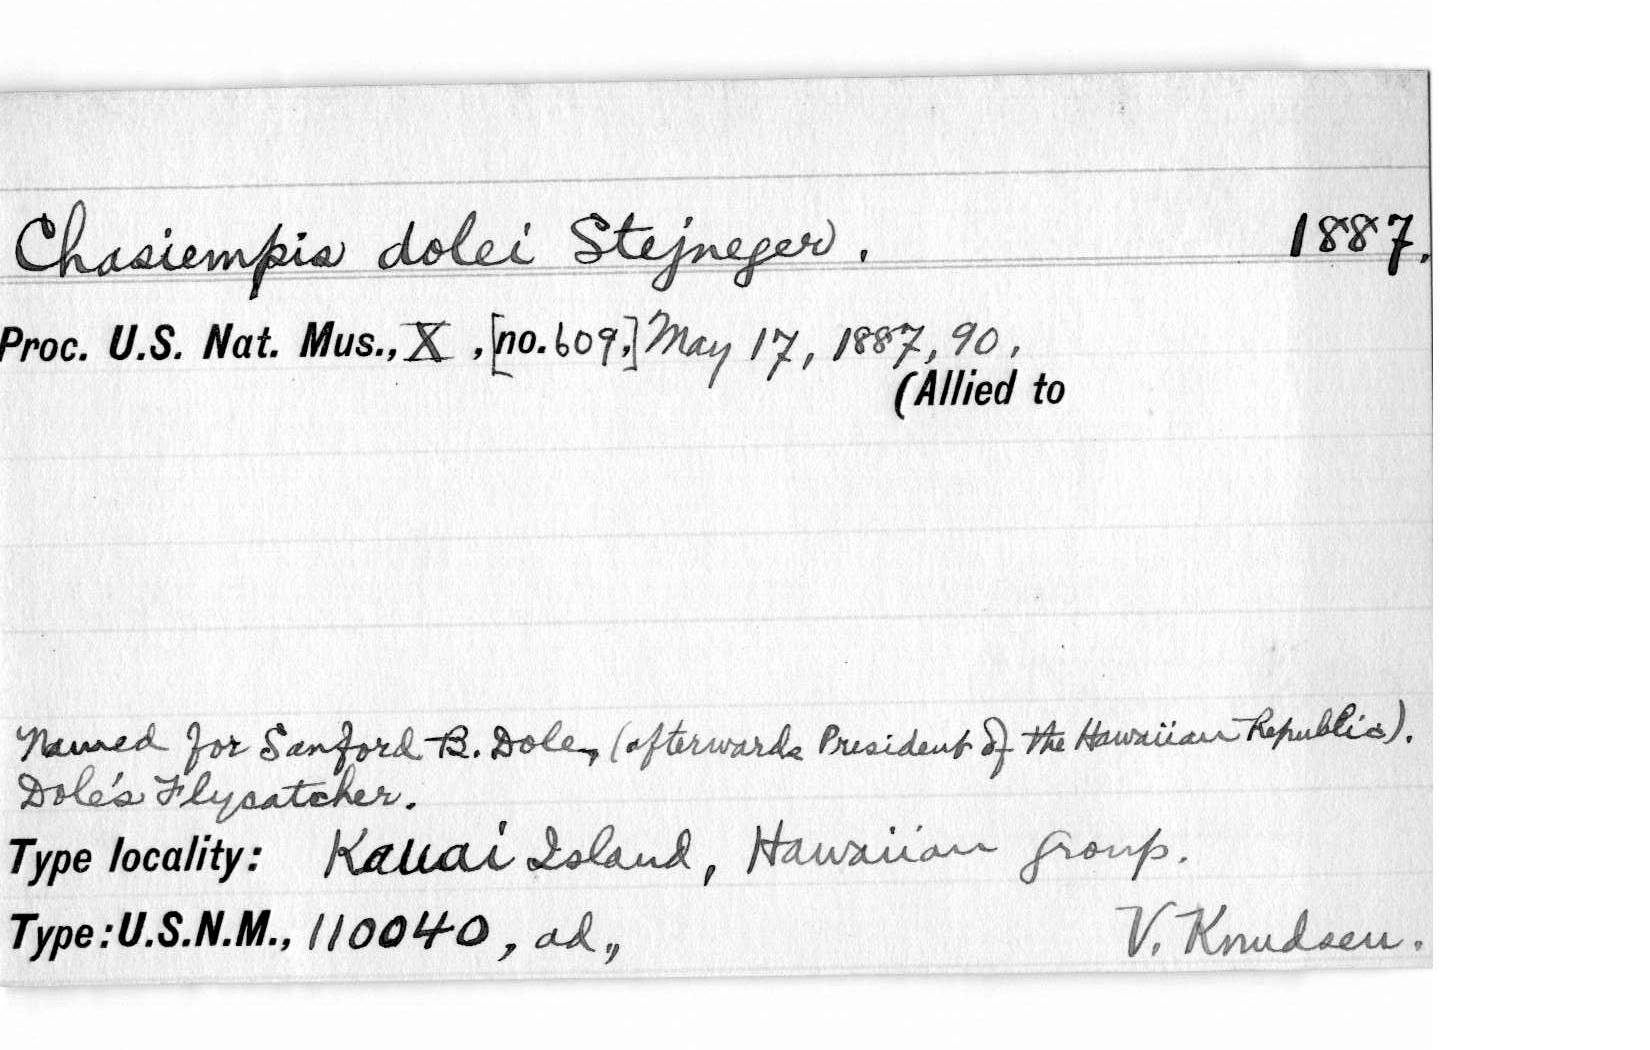 Chasiempis dolei Stejneger. 1887.
Proc. U.S. Nat. Mus., X, [no. 609,] May 17, 1887, 90.
(Allied to
Named for Sanford B. Dole, (afterwards President of the Hawaiian Republic).
Dole's Flycatcher.
Type locality: Kauai Island, Hawaiian group.
Type: U.S.N.M., 110040, ad., V. Knudsen.